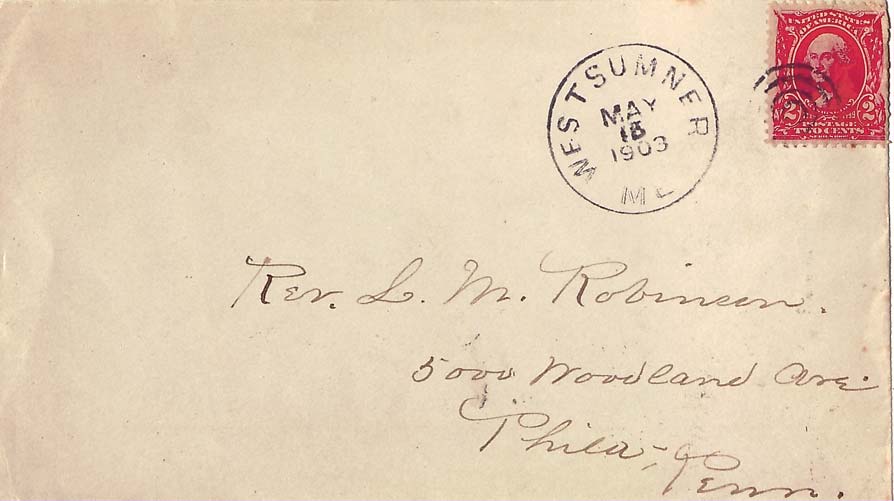 WEST SUMNER
MAY
1903
ME
UNITED STATES
OF AMERICA
2 2
POSTAGE
TWO CENTS
Rev. L. M. Robinson.
5000 Woodland Ave.
Phila-,
Penn.